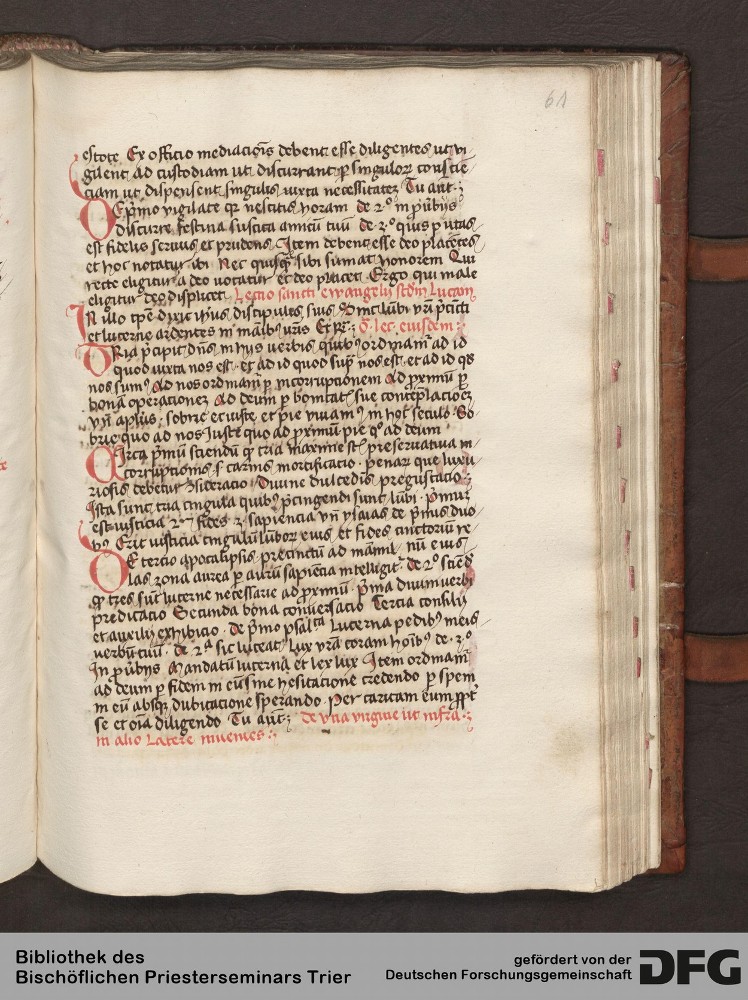 61
estote Ex officio mediacioīs debent esse diligentes ut vi
gilent ad custodiam ut discurrant p singulor conscīē
ciam ut dispensent singulis iuxta necessitatez Tu aut
De p̄mo vigilate qr nescitis horam de 2º in puūbijs
discurre festina suscita amicū tuū de 3º quis putas
est fidelis seruus et prudens Item debent esse deo placētes
et hoc notatur ibi Nec quisq̄ sibi sumat honorem Qui
recte eligitur a deo vocatur et deo placet Ergo qui male
eligitur deo displicet Lectio sancti ewangelij scdm Lucam
In illo tpē dixit ihūs discipulis suis Sint lūbi vrī p̄cīcti
et lucerne ardentes in maībꝰ vr̄is Et Rͣ O lec eiusdem
Tria p̄cipit dn̄s in hijs verbis quibꝰ ordinamͬ ad id
quod iuxta nos est et ad id quod supͣ nos est et ad id qd
nos sumꝰ Ad nos ordinamͬ p incorruptionem Ad p̄ximū p
bonā operationez Ad deum p bonitatꝭ sue contēplacionez
vn̄ apl̄us sobrie et iuste et pie viuamꝰ in hoc seculo So
brie quo ad nos Iuste quo ad p̄ximū pie qº ad deum
Circa p̄mū sciendū qͩ tria maxime st̄ preseruatiua in
corruptionis s carnis mortificacio penarꝭ que luxu
riosis debetur ꝯsideratio Diuine dulcedis pregustacio
Ista sunt tria cingula quibꝰ p̄cingendi sunt lūbi p̄mū
est iusticia 2m fides 3 sapiencia vn̄ ysaias de p̄mis duo
bꝰ Erit iusticia cingulū lūborꝭ eius et fides cinctoriū re
De tercio apocalipsis precinctū ad māmil
las zona aurea p aurū sapiēcia intelligitͬ de 2º sciēd
qͩ tres sūt lucerne necessarie ad p̄ximū p̄ma diuini verbi
predicatio Secunda bona conuersacio Tercia consilij
et auxilij exhibicio de p̄mo psalᵗᵃ Lucerna pedibꝰ meis
verbū tuū de 2ª sic luceat lux vrā coram hoībꝰ de 3º
In puūbijs Mandatū lucerna et lex lux Item ordinamͬ
ad deum p fidem in eū sine hesitacione credendo p spem
in eū absq̄ dubitacione sperando Per caritatem eum ꝓpt
se et oīa diligendo Tu aut De vna virgine ut infra
in alio Latere inuenies
Bibliothek des
Bischöflichen Priesterseminars Trier
gefördert von der
Deutschen Forschungsgemeinschaft
DFG